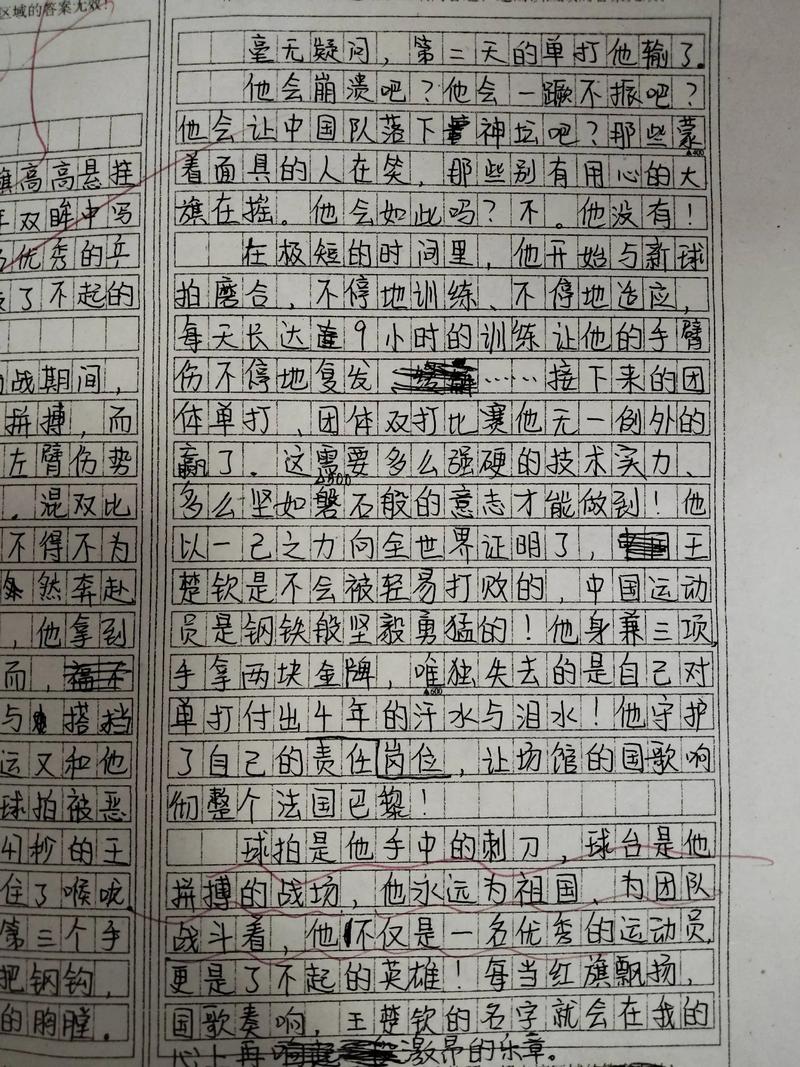 区域的答案无效!
旗高高悬挂
年双眸中写
名优秀的乒
了不起的
战期间，
拼搏，而
左臂伤势
．混双比
不得不为
然奔赴
，他拿到
而，
与搭挡
运又和他
球拍被恶
41秒的王
住了喉咙
第三个手
把钢钩，
的胸膛．
毫无疑问，第二天的单打他输了．
他会崩溃吧？他会一蹶不振吧？
他会让中国队落下神坛吧？那些蒙
▲400
着面具的人在笑，那些别有用心的大
旗在摇。他会如此吗？不。他没有！
在极短的时间里，他开始与新球
拍磨合、不停地训练、不停地适应，
每天长达9小时的训练让他的手臂
伤不停地复发……接下来的团
体单打、团体双打比赛他无一例外的
赢了．这需要多么强硬的技术实力、
▲500
多么坚如磐石般的意志才能做到！他
以一己之力向全世界证明了，王
楚钦是不会被轻易打败的，中国运动
员是钢铁般坚毅勇猛的！他身兼三项，
手拿两块金牌，唯独失去的是自己对
▲600
单打付出4年的汗水与泪水！他守护
了自己的责任岗位，让场馆的国歌响
彻整个法国巴黎！
球拍是他手中的刺刀，球台是他
拼搏的战场，他永远为祖国、为团队
战斗着，他不仅是一名优秀的运动员，
更是了不起的英雄！每当红旗飘扬，
国歌奏响，王楚钦的名字就会在我的
心上再激昂的乐章。